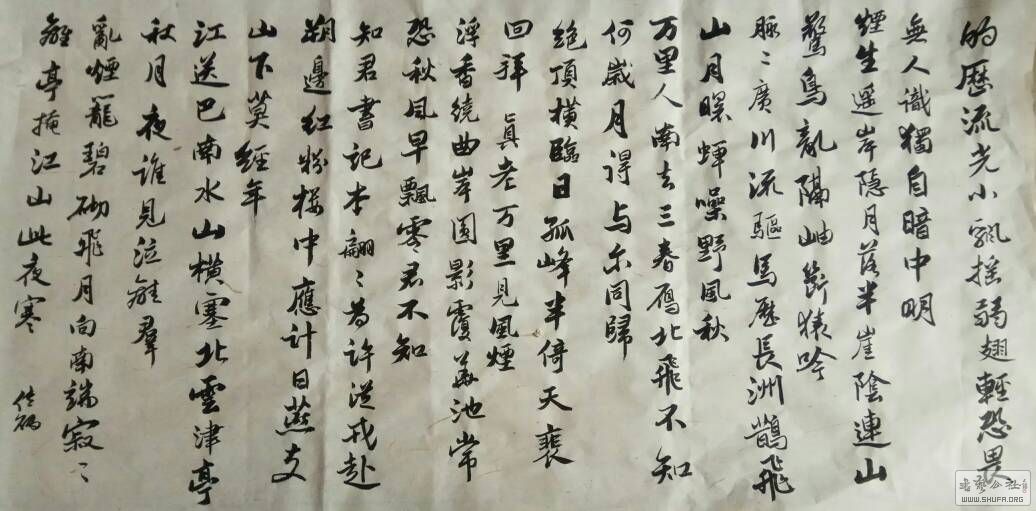 的歷流光小飄摇弱翅輕恐畏
無人識獨自暗中明
煙生遥岸隐月落半崖陰連山
驚鳥亂隔岫斷猿吟
脈〻廣川流驅馬歷長洲鵲飛
山月曙蟬噪野風秋
万里人南去三春雁北飛不知
何歲月得与尔同歸
绝頂横臨日孤峰半倚天裴
回拜真老万里見風煙
浮香繞曲岸圆影覆華池常
恐秋風早飄零君不知
知君書記本翩〻為許從戎赴
朔邊红粉樓中應计日燕支
山下莫經年
江送巴南水山横塞北雲津亭
秋月夜誰見泣離羣
亂煙籠碧砌飛月向南端寂〻
離亭掩江山此夜寒
WWW.SHUFA.ORG